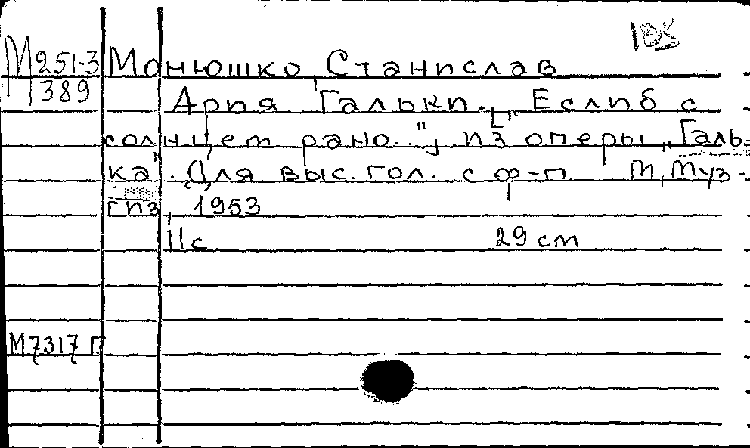 188
М251-3 Монюшко, Станислав
389 Ария Гальки. „Еслиб с
солнцем рано.", из оперы „Галь-
ка". Для выс. гол. с ф-п. М, Муз-
гиз, 1953
11с 29 см
М7317 г